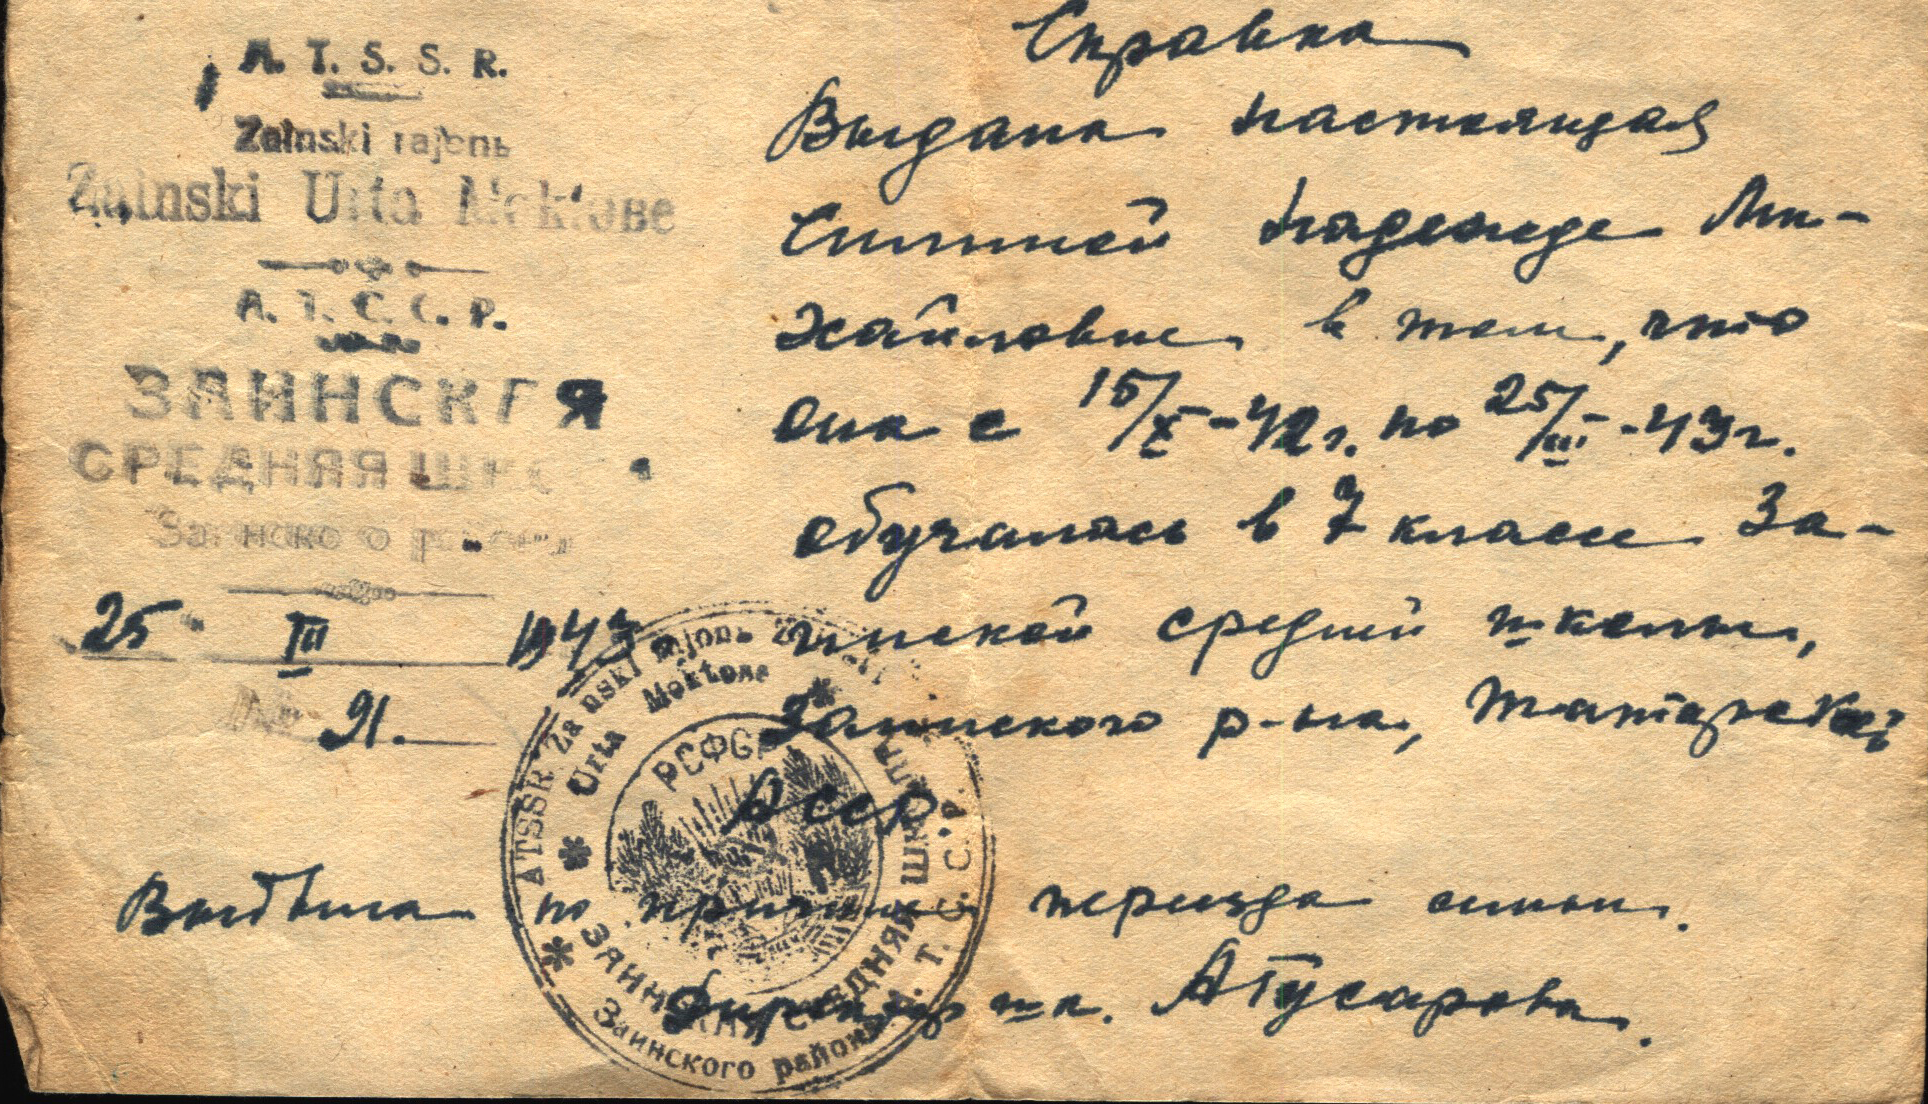 A. T. S. S. R.
Zainski rajonь
Zainski Urta Məktəʙe
А. Т. С. С. Р.
ЗАИНСКАЯ
СРЕДНЯЯ
Заинского района
25 III 1943
№ 91.
Справка
Выдана настоящая
Надежде Ми-
хайловне в том, что
она с 15/X-42 г. по 25/III-43 г.
обучалась в 7 классе За-
инской средней школы,
Заинского р-на, Татарской
АССР.
Выбыла по причине переезда семьи.
Директор шк. АГусарова.
ATSSR Zainski rajonь
Urta Məktəʙe
РСФСР
ЗАИНСКАЯ СРЕДНЯЯ ШКОЛА
Заинского района А. Т. С. С. Р.